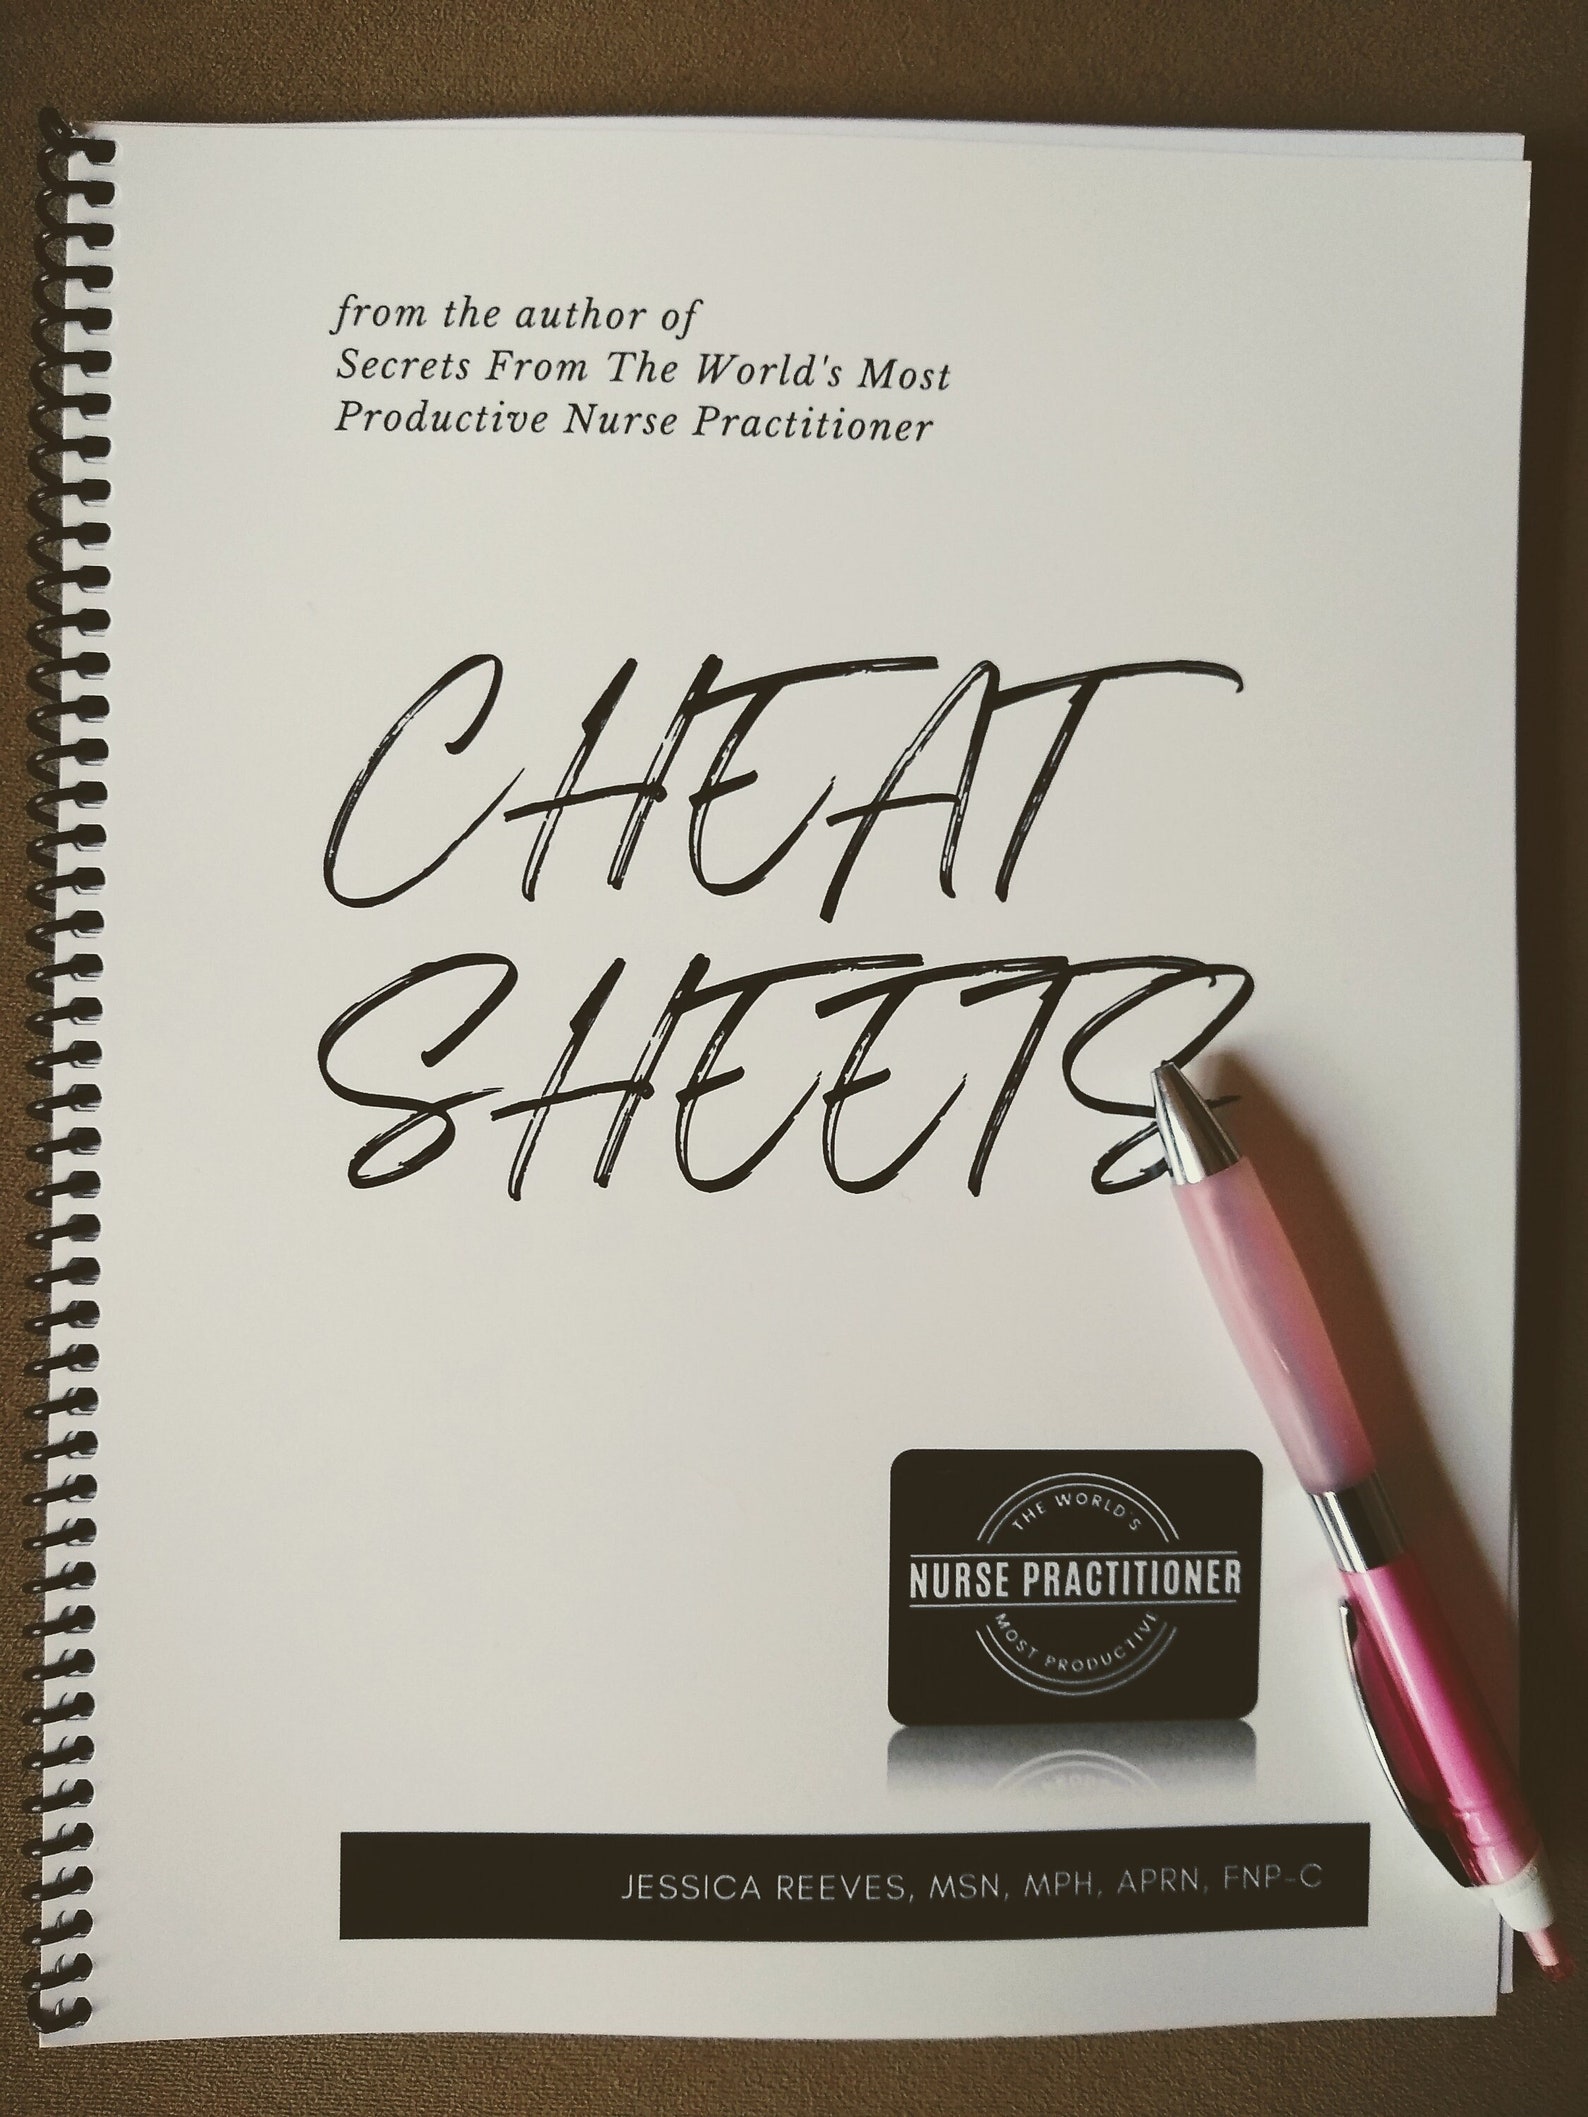 from the author of
Secrets From The World's Most
Productive Nurse Practitioner
CHEAT
SHEETS
THE WORLD'S
NURSE PRACTITIONER
MOST PRODUCTIVE
JESSICA REEVES, MSN, MPH, APRN, FNP-C